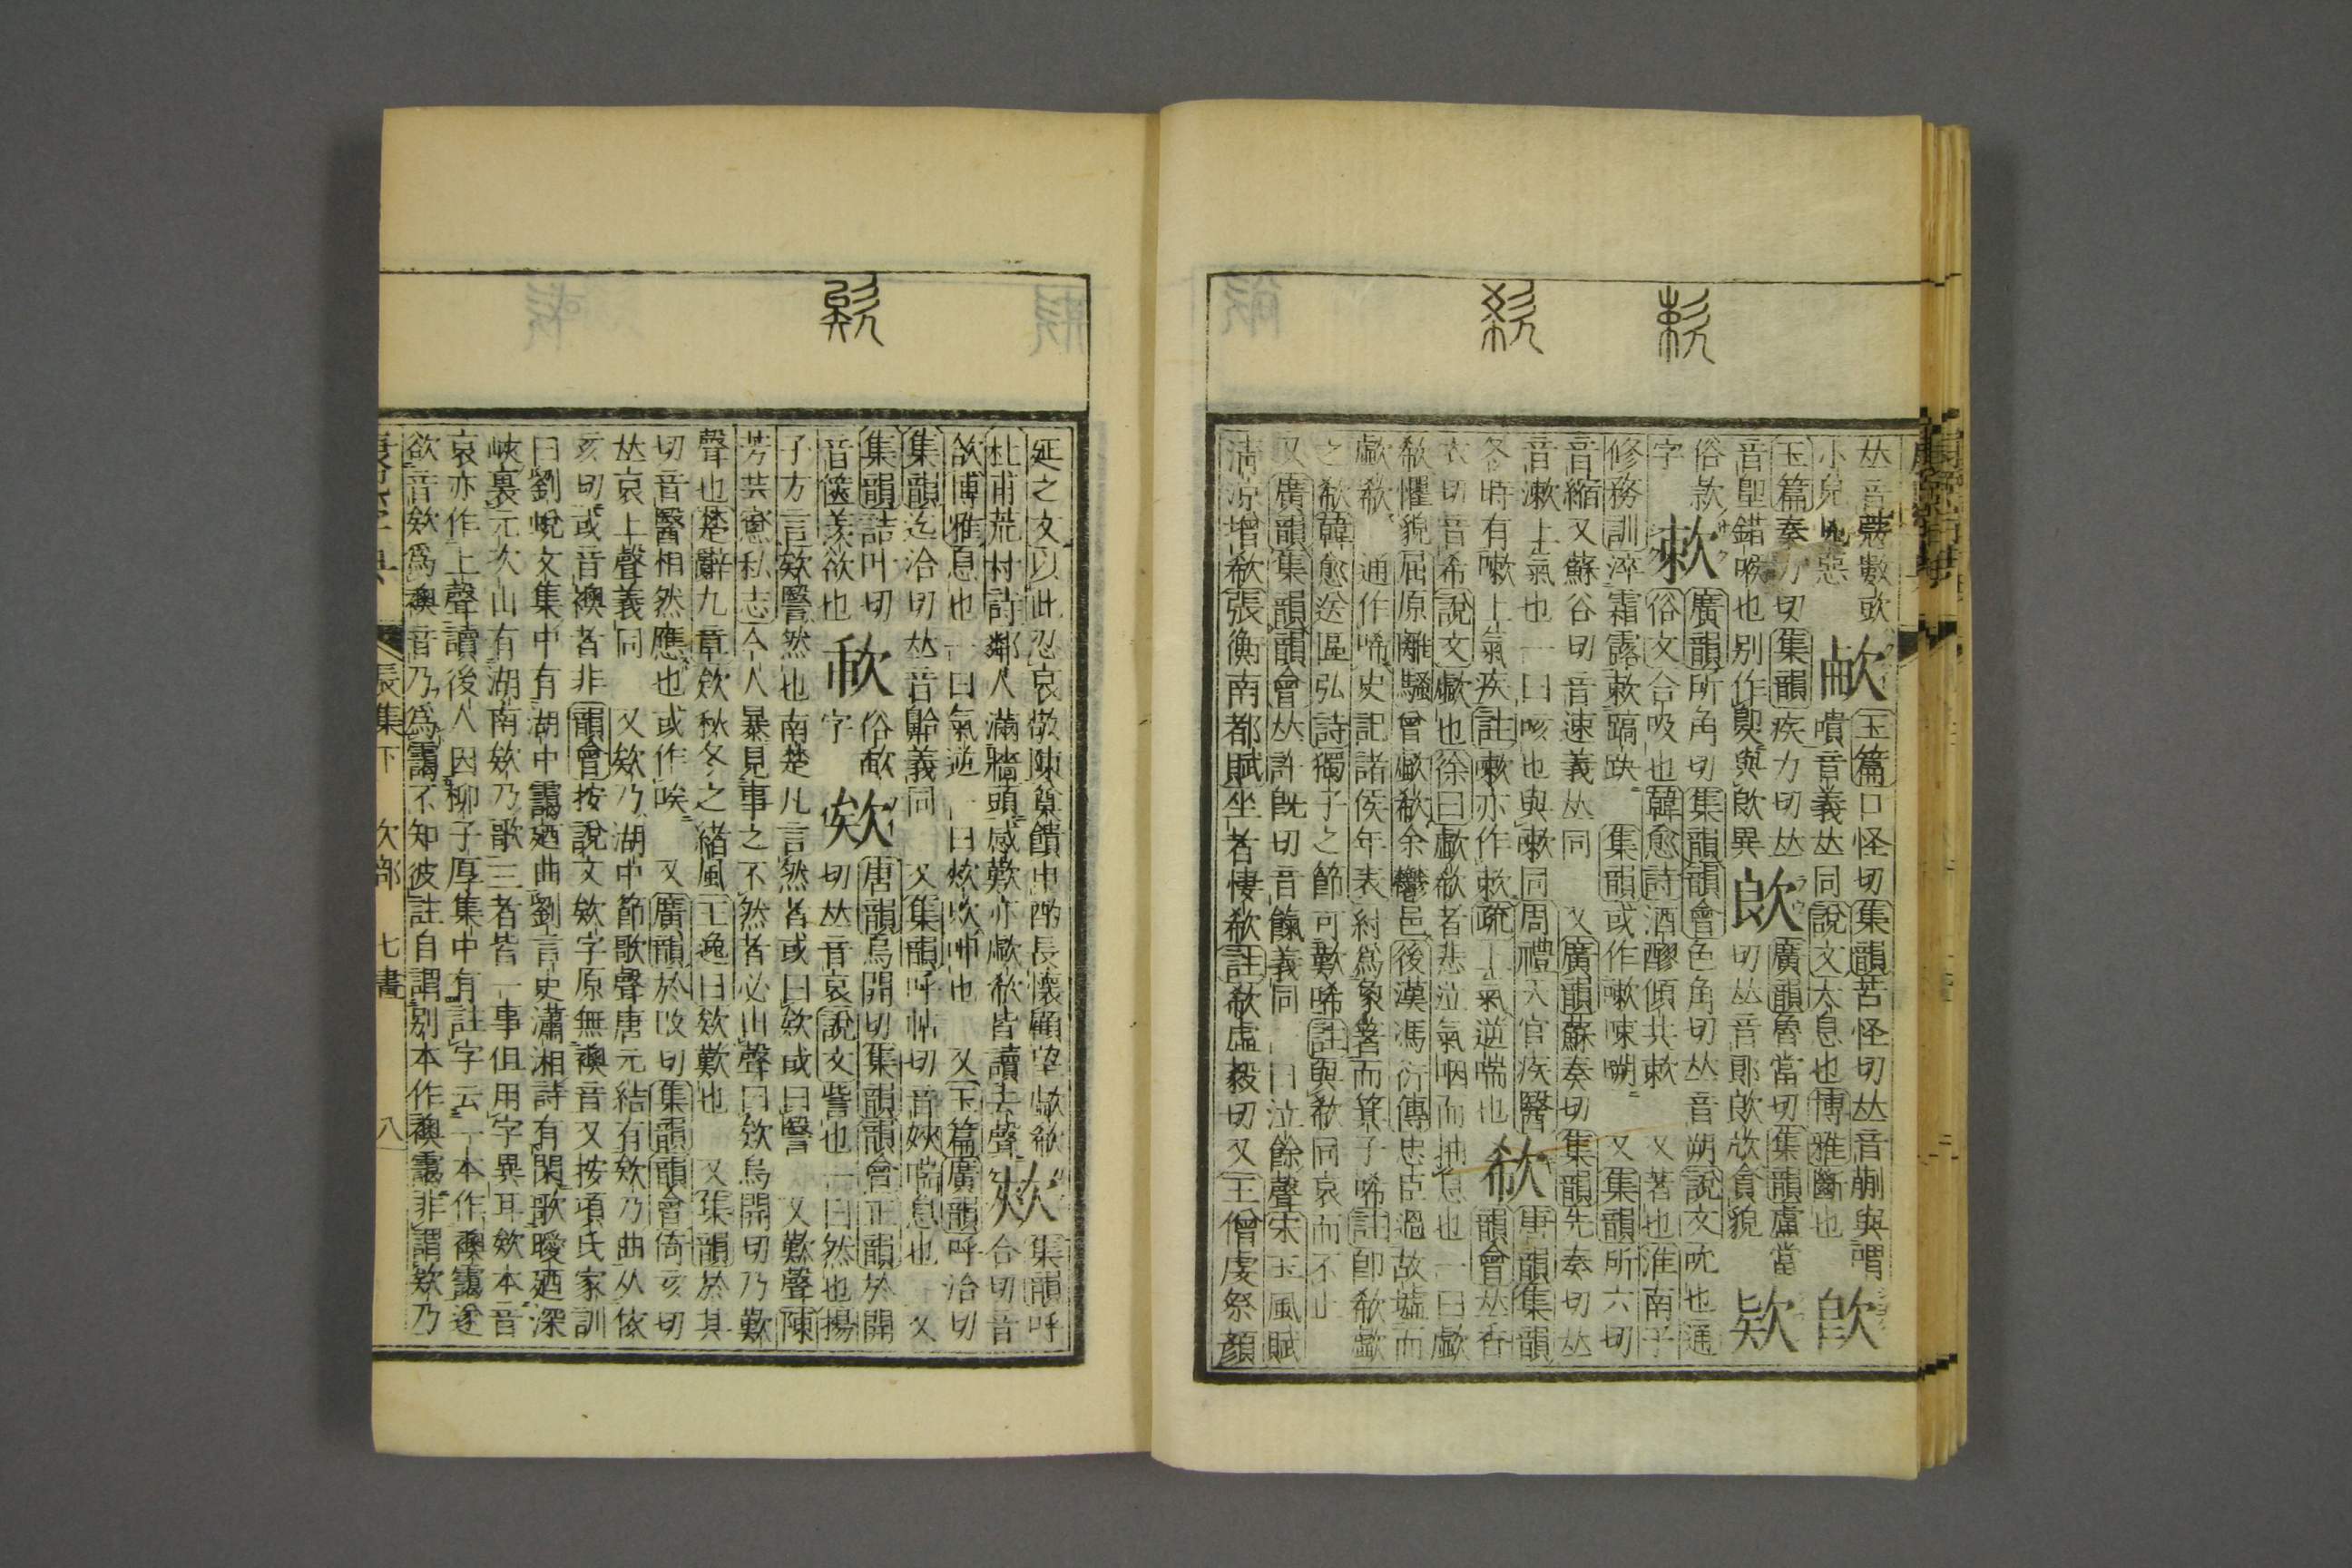 小兒兇惡
玉篇口怪切集韻苦怪切丛音蒯與喟
嘳音義丛同說文太息也博雅斷也
玉篇奏力切集韻疾力切丛
欴
廣韻魯當切集韻盧當
欵
俗款
字
欶
廣韻所角切集韻韻會色角切丛音朔說文吮也通
俗文合吸也韓愈詩酒醪傾共欶 又著也淮南子
修務訓淬霜露欶蹻趹 集韻或作嗽㖻嗍 又集韻所六切
音縮又蘇谷切音速義丛同 又廣韻蘇奏切集韻先奏切丛
音漱上氣也一曰咳也與嗽同周禮天官疾醫
冬時有嗽上氣疾註嗽亦作欶疏上氣逆喘也
欷
唐韻集韻
韻會丛香
衣切音希說文歔也徐曰歔欷者悲泣氣咽而抽息也一曰歔
欷懼貌屈原離騷曾歔欷余鬱邑後漢馮衍傳忠臣過故墟而
歔欷 通作唏史記諸侯年表紂爲象箸而箕子唏註卽欷歔
之欷韓愈送區弘詩獨子之節可歎唏註與欷同哀而不止
又廣韻集韻韻會丛許旣切音餼義同 一曰泣餘聲宋玉風賦
清涼增欷張衡南都賦坐者悽欷註欷虛毅切又王僧虔祭顏
延之文以此忍哀敬陳奠饋申酌長懷顧望歔欷
杜甫荒村詩鄰人滿牆頭感歎亦歔欷皆讀去聲
集韻呼
合切音
欱博雅息也一曰氣逆一曰 呻也 又玉篇廣韻呼洽切
集韻迄洽切丛音 義同 又集韻呼帖切音 喘息也 又
集韻詰叶切
音篋羨欲也
字
欸
唐韻烏開切集韻韻會正韻於開
切丛音哀說文訾也一曰然也揚
子方言欸醫然也南楚凡言然者或曰欸或曰醫 又歎聲陳
芳芸窻私志今人暴見事之不然者必出聲曰欸烏開切乃歎
聲也楚辭九章欸秋冬之緒風王逸曰欸歎也 又集韻於其
切音醫相然應也或作唉 又廣韻於改切集韻韻會倚亥切
丛哀上聲義同 又欸乃湖中節歌聲唐元結有欸乃曲丛依
亥切或音襖者非韻會按說文欸字原無襖音又按項氏家訓
曰劉蛻文集中有湖中靄迺曲劉言史瀟湘詩有閑歌曖迺深
峽裏元次山有湖南欸乃歌三者皆一事但用字異耳欸本音
哀亦作上聲讀後人因柳子厚集中有註字云一本作襖靄遂
欲音欸爲襖音乃爲靄不知彼註自謂別本作襖靄非謂欸乃
康熙字典 辰集下 欠部 七畫 八